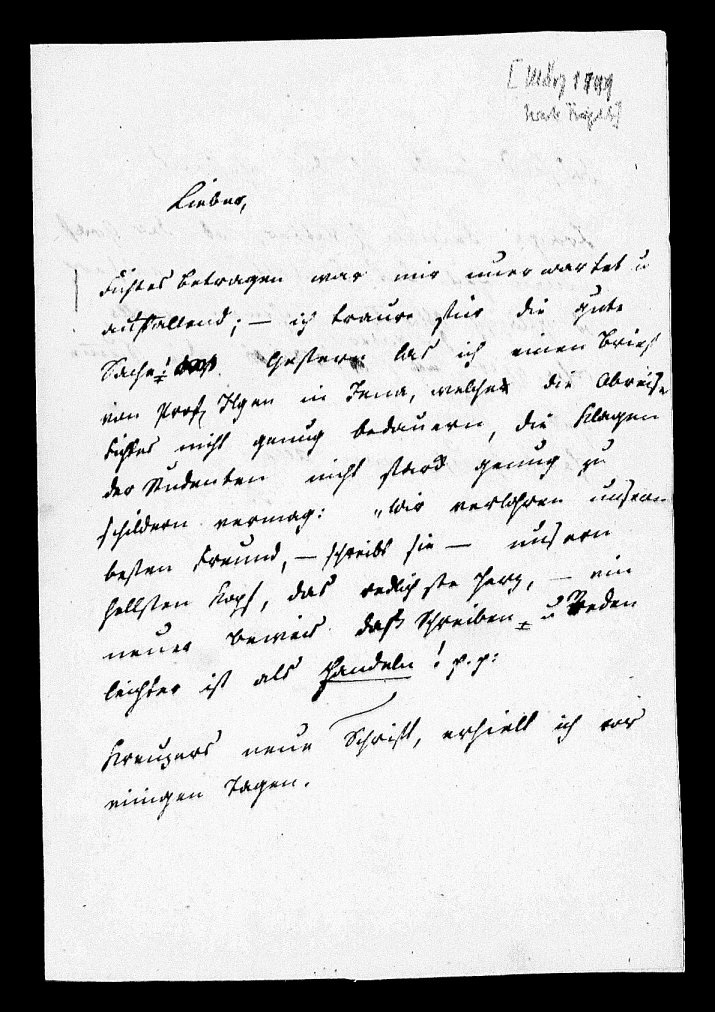 [März 1799
Lieber,
Fichtes betragen war mir unerwartet u
auffallend; — ich traure für die gute
Sache! Gestern las ich einen Brief
von Prof Ilgen in Jena, welcher die Abreise
Fichtes nicht genug bedauern, die Klagen
der Studenten nicht stark genug zu
schildern vermag: „Wir verlohren unsern
besten Freund, — schreibt sie — unsern
hellsten Kopf, das redlichste Herz, — ein
neuer beweis daß Schreiben u Reden
leichter ist als Handeln! p.p:
Kreuzers neue Schrift, erhielt ich vor
einigen Tagen.